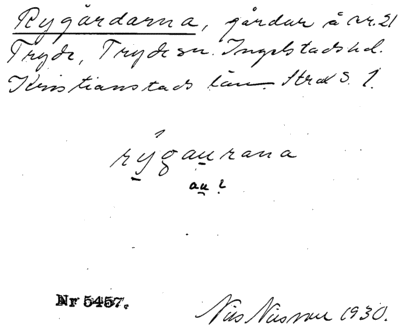 Rygårdarna, gårdar å nr. 21
Tryde, Tryde sn. Ingelstads hd.
Kristianstads län. Strd S. 1.
rýgau̲rana
au̲ ?
Nr 5457.
Nils Nilsson 1930.